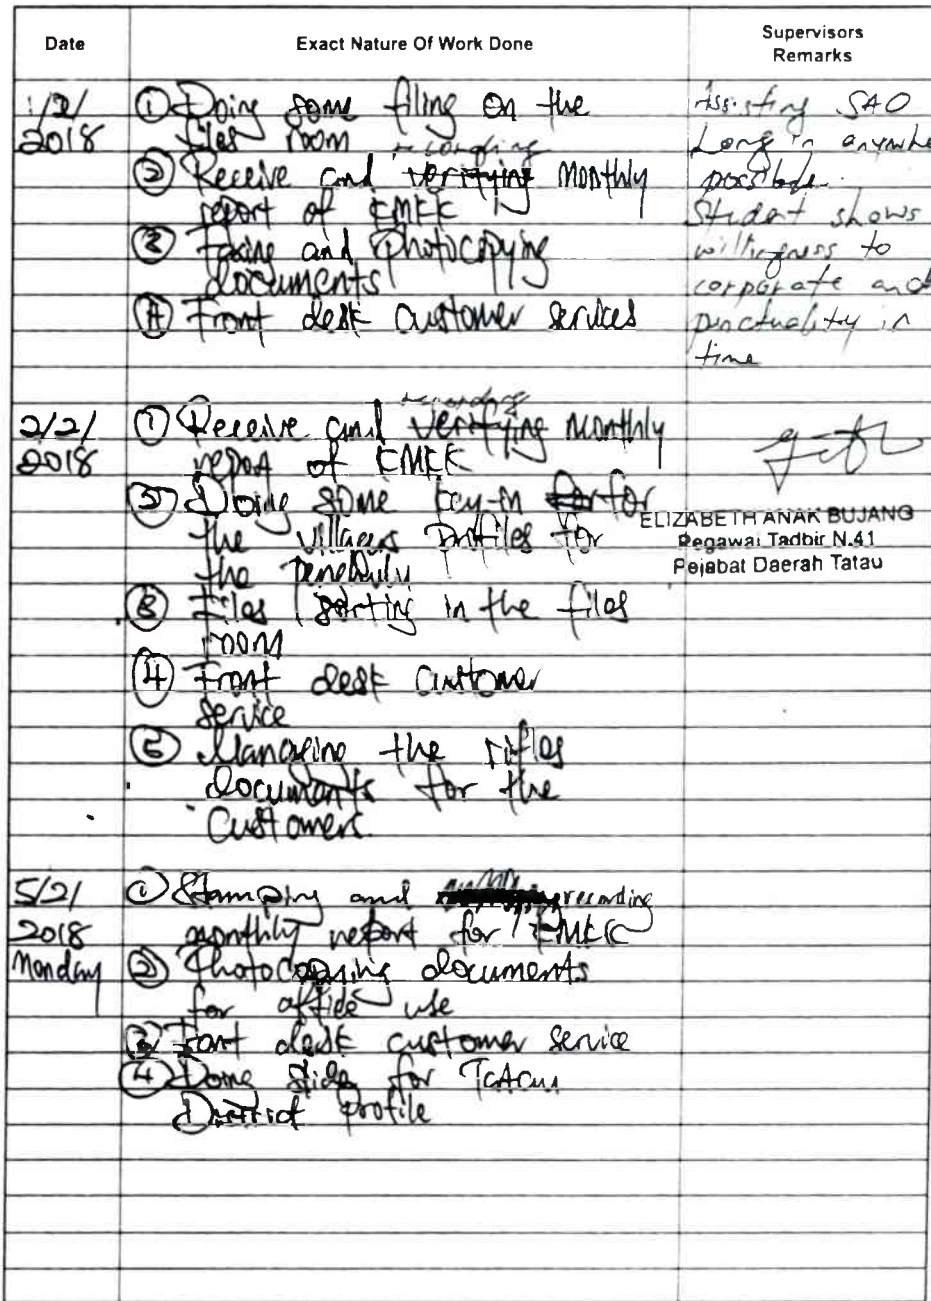 Date
Exact Nature Of Work Done
Supervisors
Remarks
1/2/
2018
① Doing some filing on the
files room
recording
② Receive and verifying monthly
report of KMKK
③ Faxing and Photocopying
documents
④ Front desk customer services
Assisting SAO
Long in anywhe
possible.
Student shows
willingness to
corporate and
punctuality in
time
2/2/
2018
recording
① Receive and verifying monthly
report of KMKK
② Doing some key-in for for
the villagers profiles for
the
③ Files sorting in the files
room
④ Front desk customer
service
⑤ Managing the rifles
documents for the
customers.
ELIZABETH ANAK BUJANG
Pegawai Tadbir N.41
Pejabat Daerah Tatau
5/2/
2018
Monday
① Stamping and recording
monthly report for KMKK
② Photocopying documents
for office use
③ Font desk customer service
④ Doing slide for Tatau
District profile